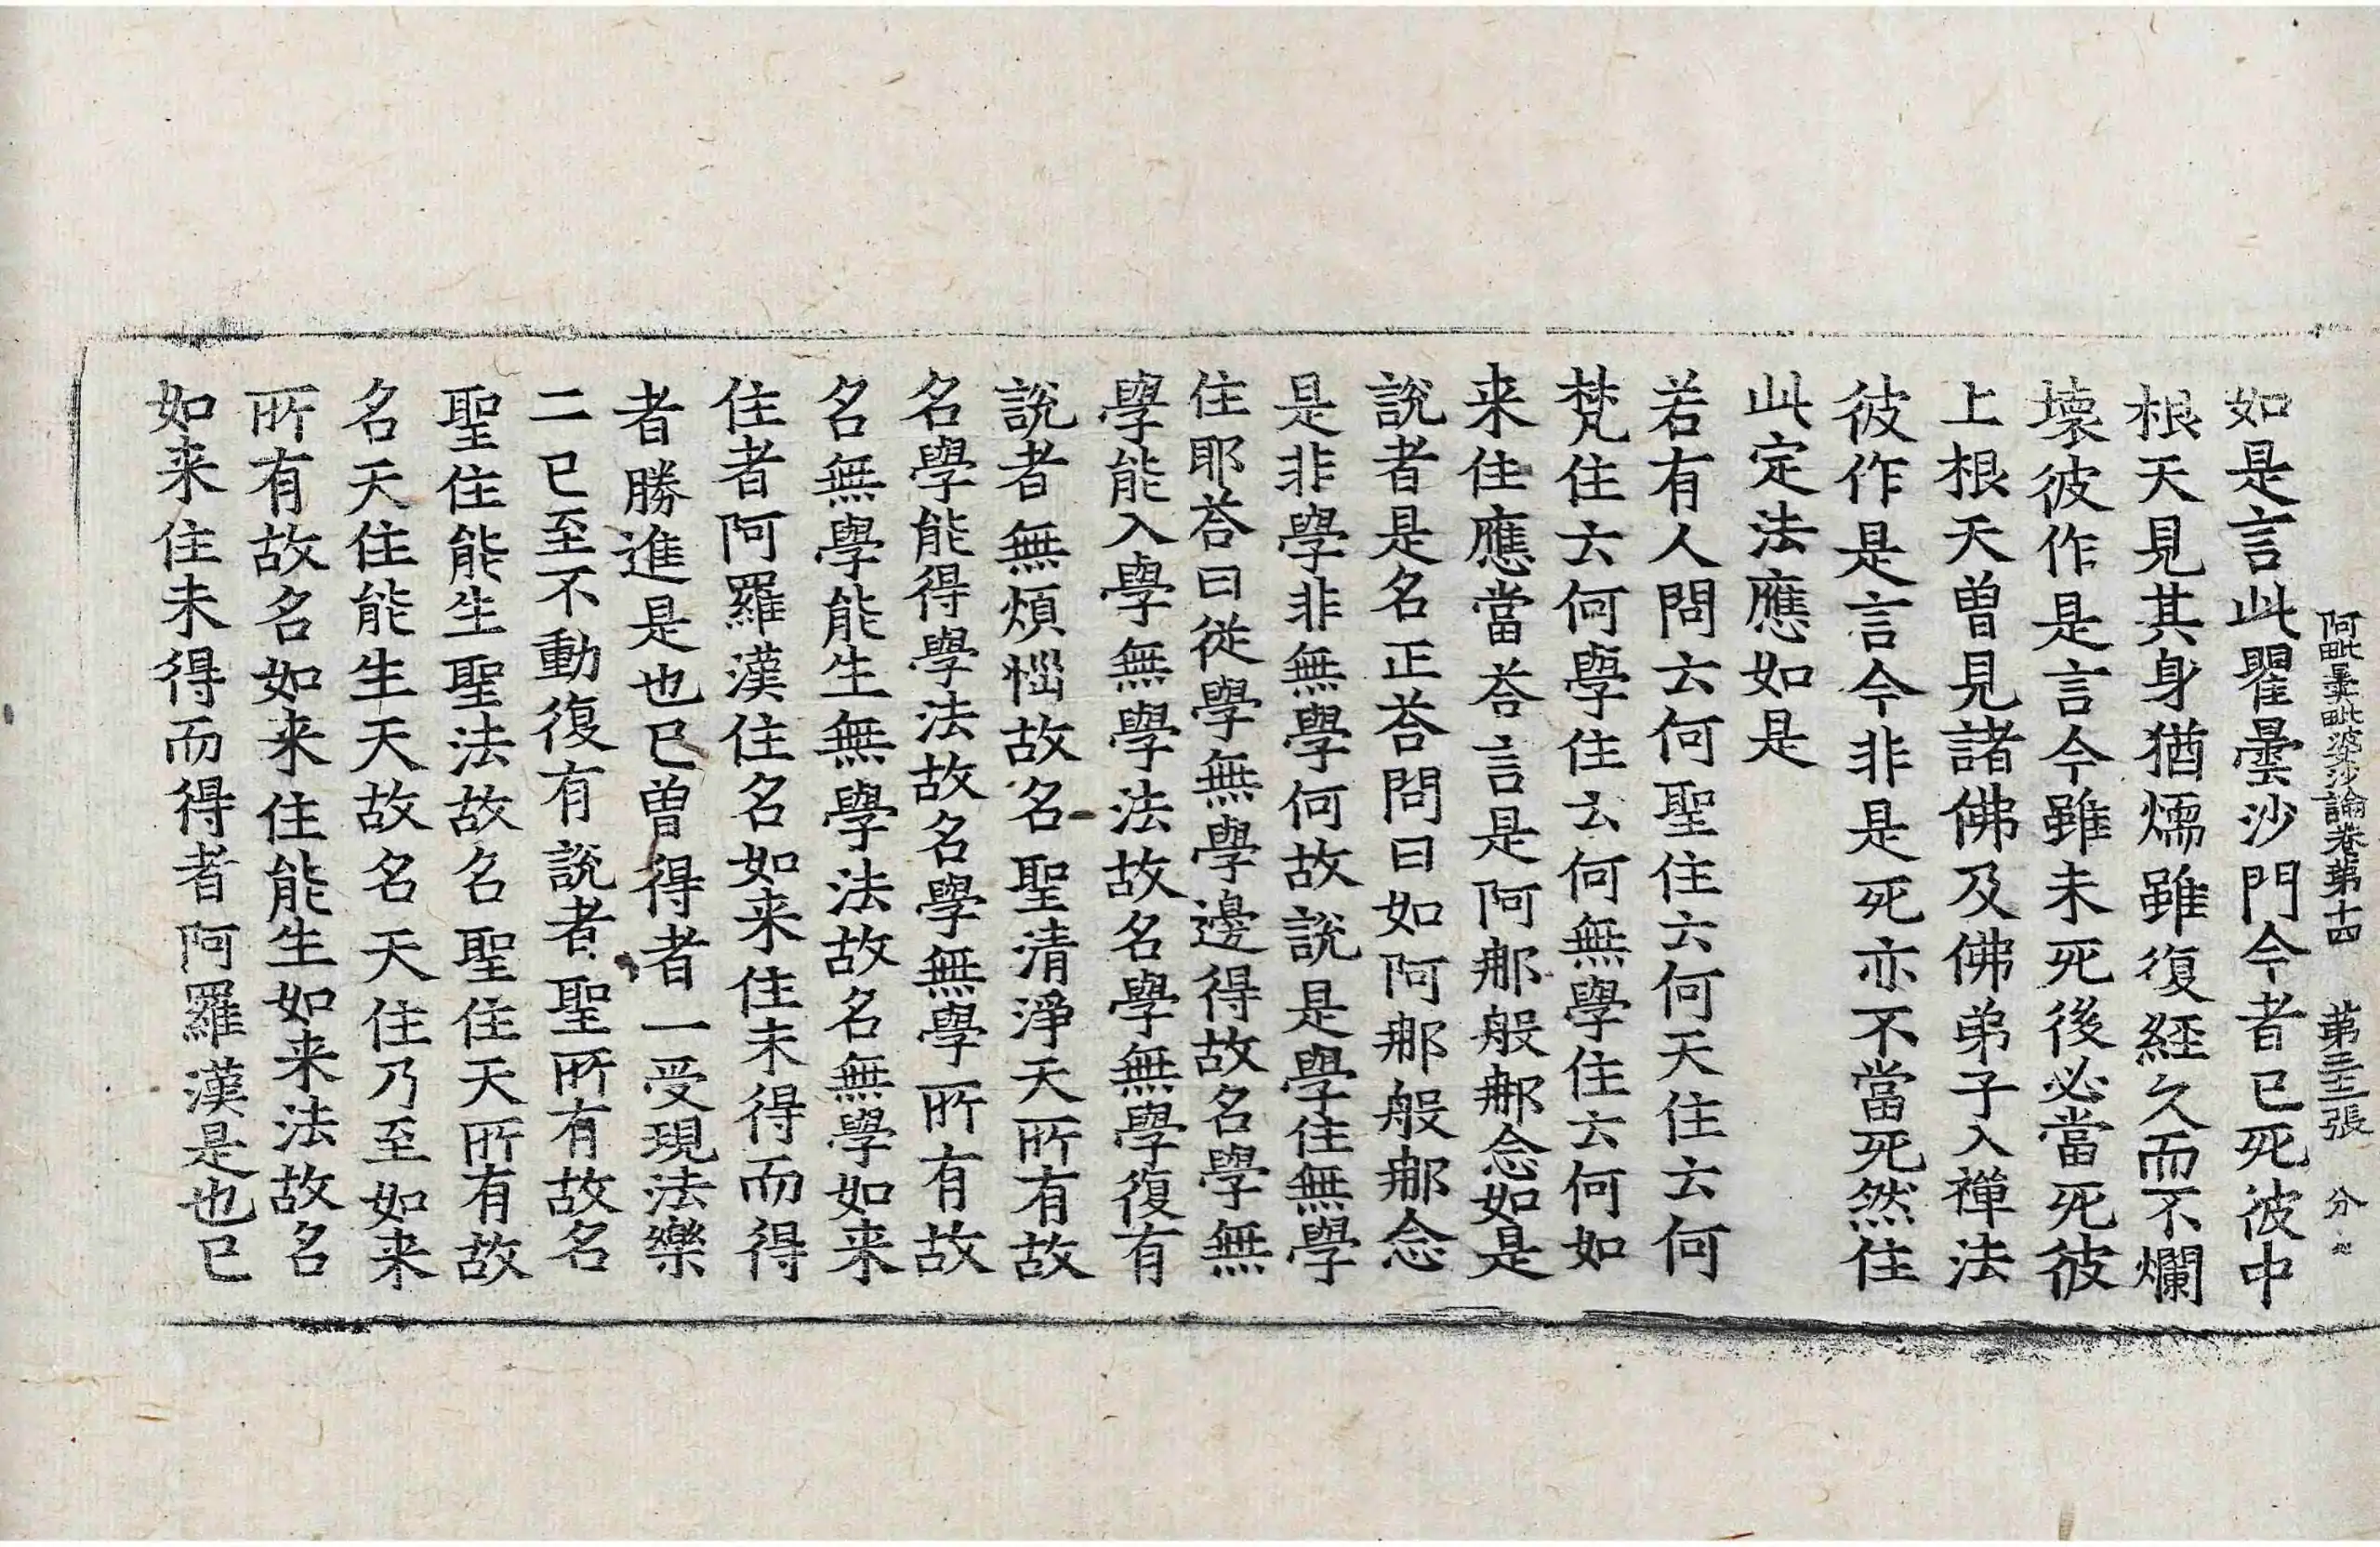 阿毗曇毗婆沙論卷第十四　第三十二張　分
如是言此瞿曇沙門今者已死彼中
根天見其身猶㬉雖復經久而不爛
壞彼作是言今雖未死後必當死彼
上根天曾見諸佛及佛弟子入禪法
彼作是言今非是死亦不當死然住
此定法應如是
若有人問云何聖住云何天住云何
梵住云何學住云何無學住云何如
来住應當荅言是阿那般那念如是
說者是名正荅問曰如阿那般那念
是非學非無學何故說是學住無學
住耶荅曰從學無學邊得故名學無
學能入學無學法故名學無學復有
說者無煩惱故名聖清淨天所有故
名學能得學法故名學無學所有故
名無學能生無學法故名無學如来
住者阿羅漢住名如来住未得而得
者勝進是也已曾得者一受現法樂
二已至不動復有說者聖所有故名
聖住能生聖法故名聖住天所有故
名天住能生天故名天住乃至如来
所有故名如来住能生如来法故名
如来住未得而得者阿羅漢是也已